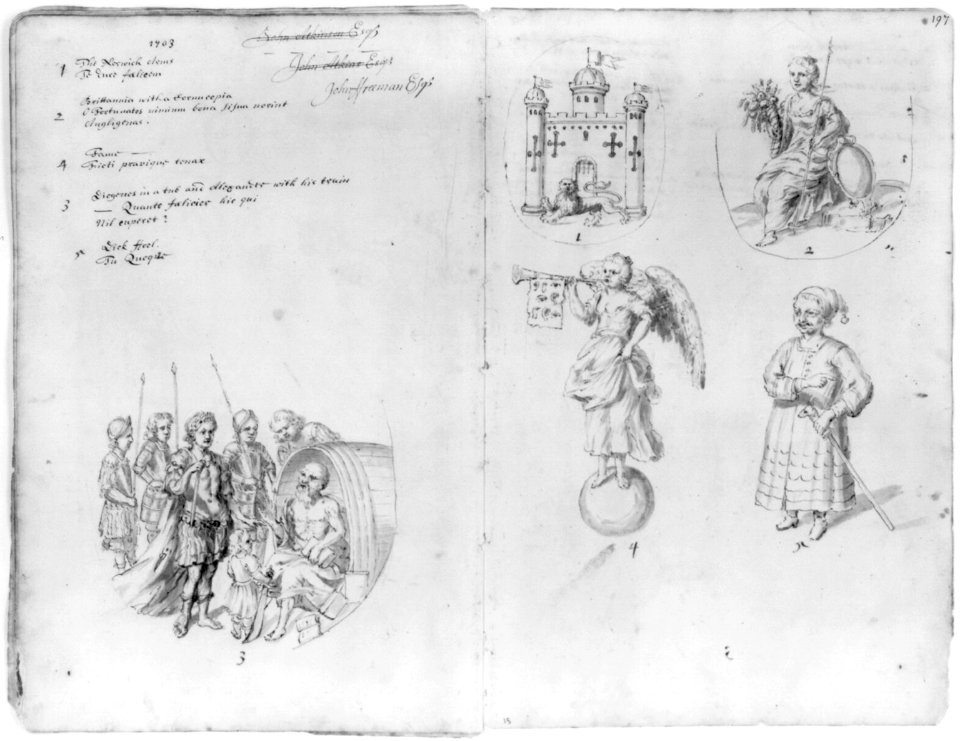 1703
John Atkinson Esqr
John Atkins Esqr
John Freeman Esqr
1 The Norwich Arms
Te Duce falicem
Brittannia with a Cornucopia
O fortunatos nimium bona si sua norint
2 Angligenas.
Fame
4 Ficti pravique tenax
Diogenes in a tub and Alexander with his train
3 Quanto falicior hic qui
Nil cuperet?
5 Dick Fool.
Tu Quoque
3
197
1
2
4
5